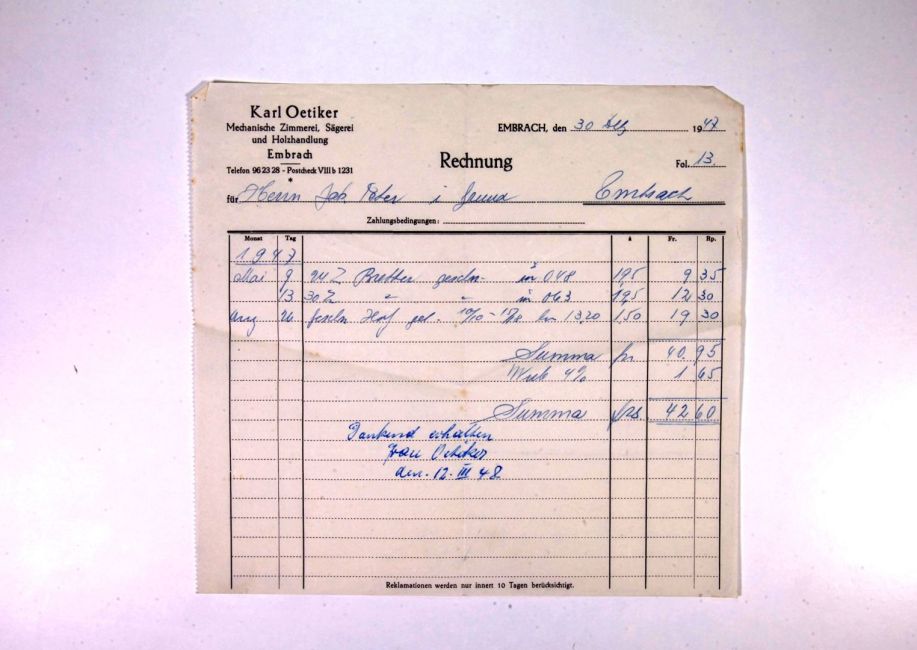 Karl Oetiker
Mechanische Zimmerei, Sägerei
und Holzhandlung
Embrach
Telefon 96 23 28 – Postcheck VIII b 1231
*
EMBRACH, den 30 Dez 1947
Rechnung
Fol. 13.
für Herrn Jab. i Embrach
Zahlungsbedingungen:
Monat Tag à Fr. Rp.
1947
Mai 9 Bretter geschn. in 048 195 9 35
13 30 " " in 063 195 12 30
Aug 26 1320 150 19 30
Summa fr 40.95
Wust 4% 1 65
Summa frs. 42 60
Dankend erhalten
Frau Oetiker
den. 12. III 48.
Reklamationen werden nur innert 10 Tagen berücksichtigt.